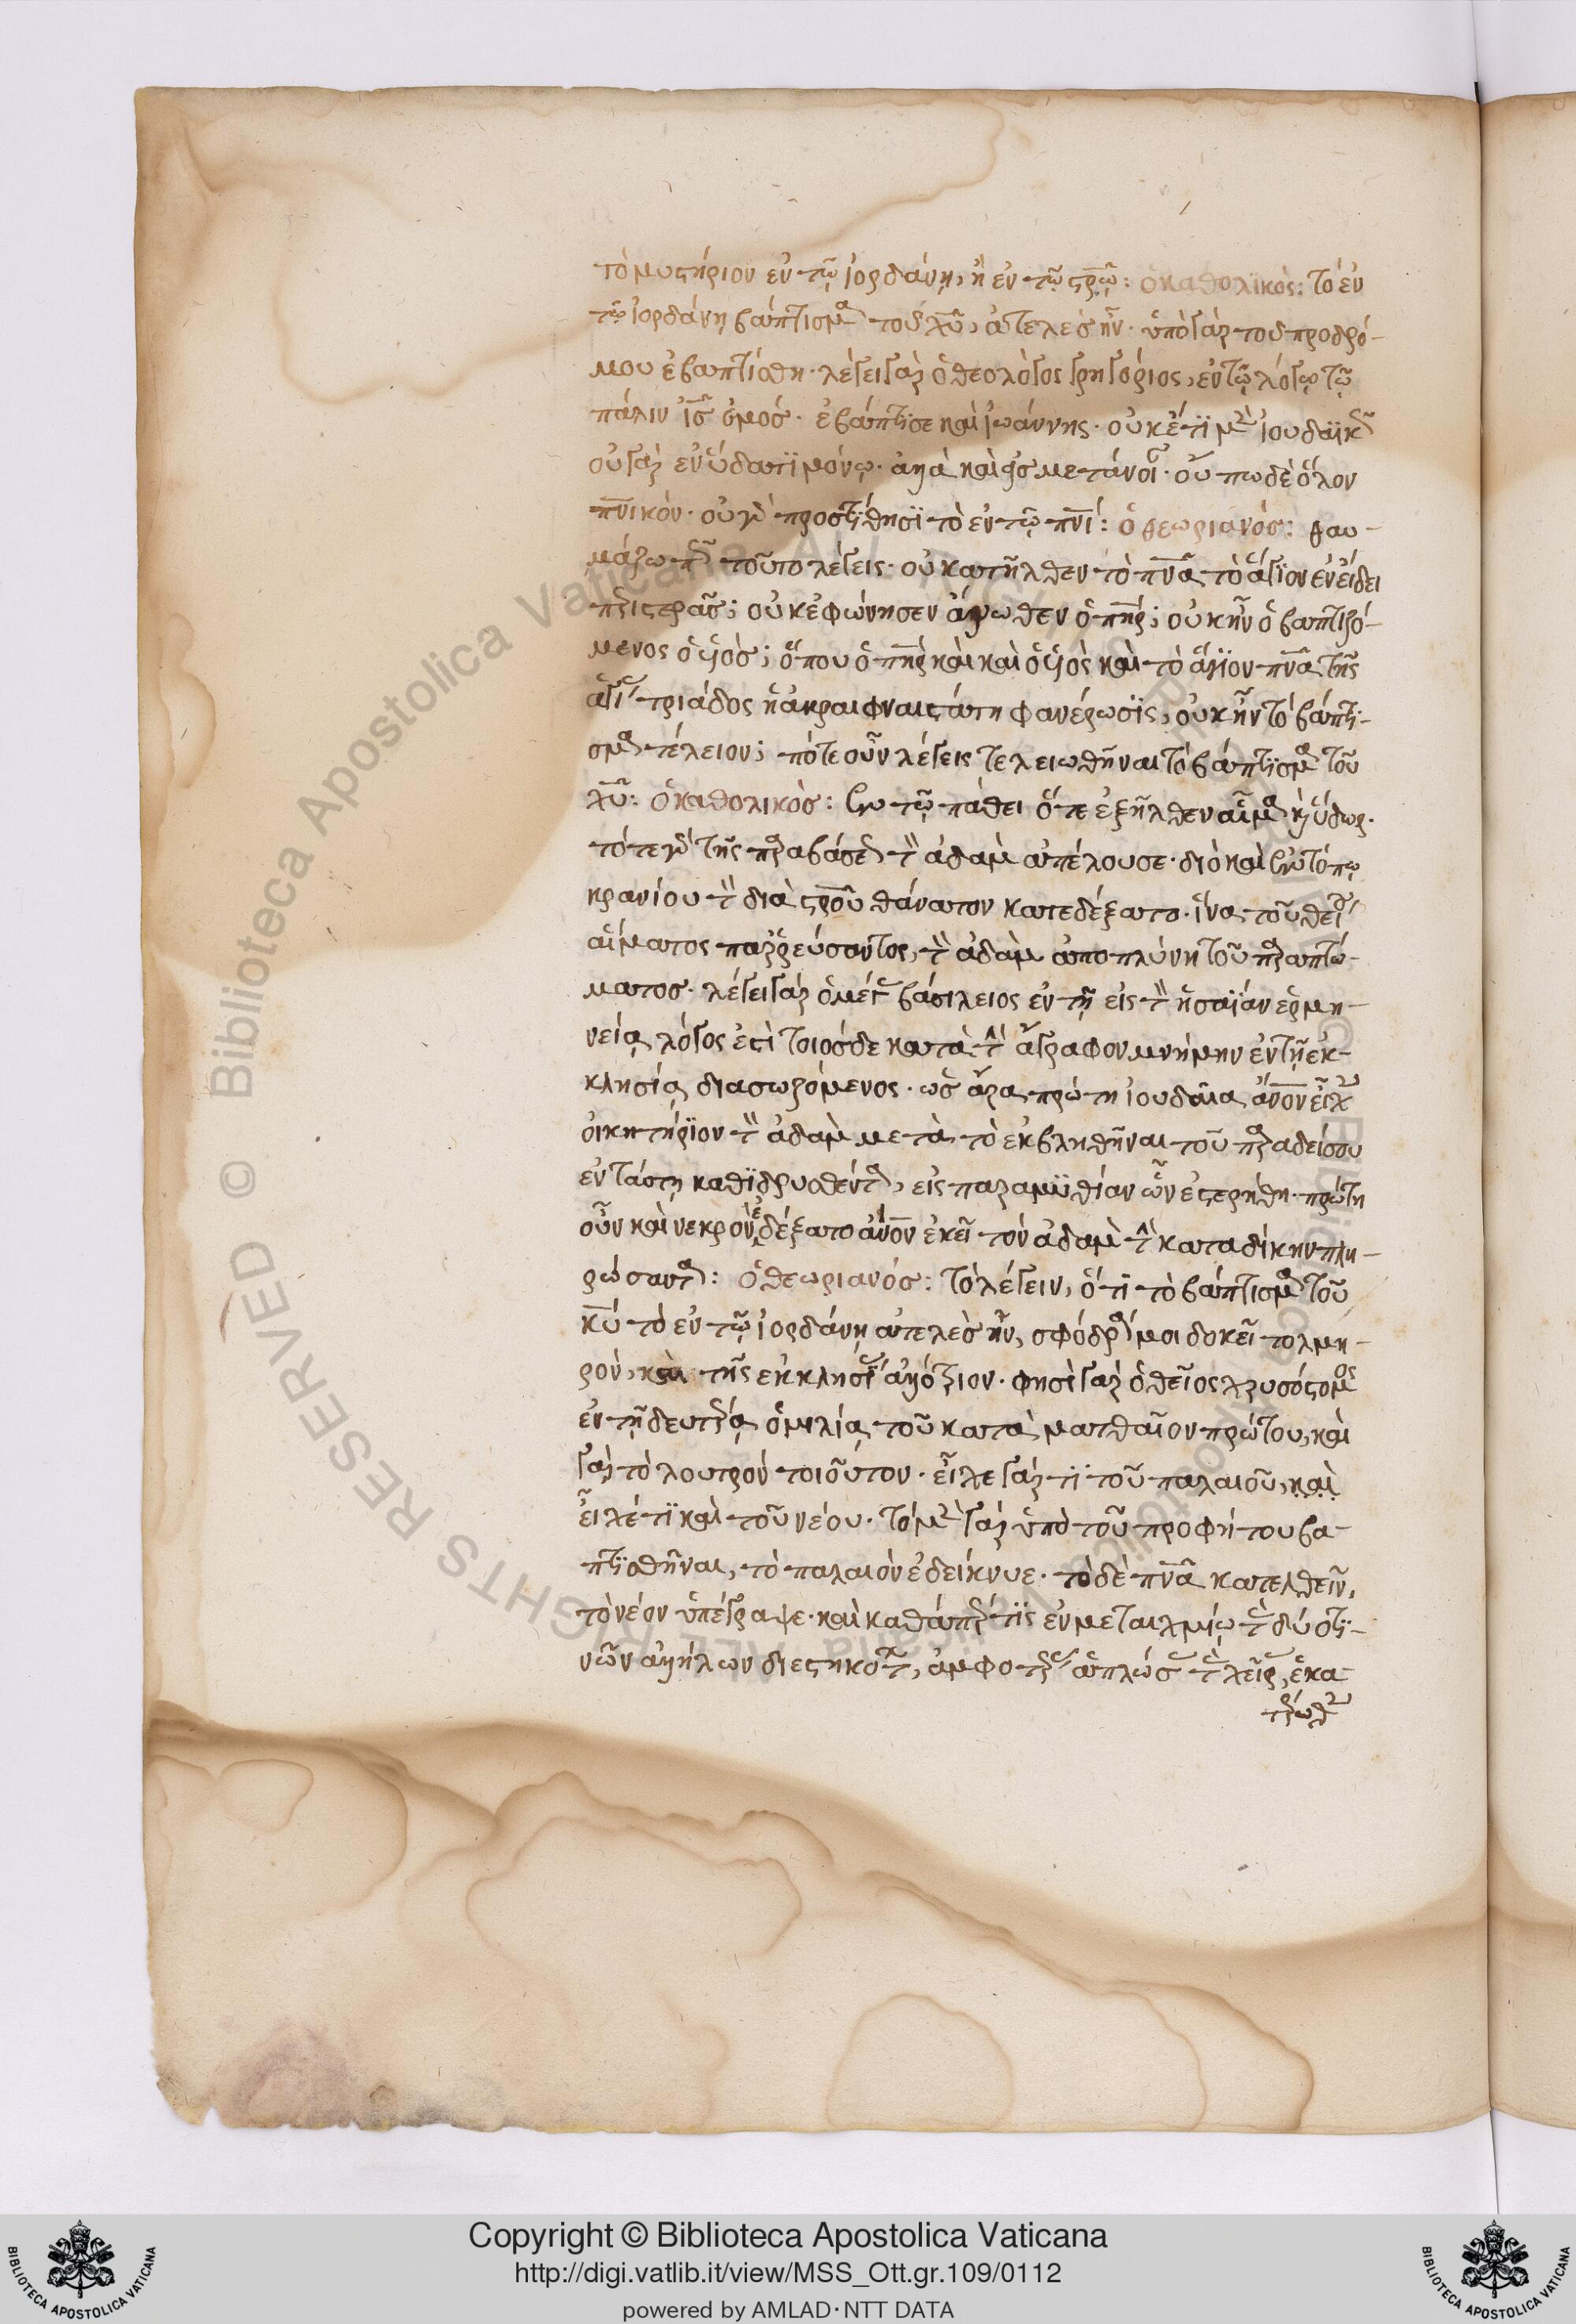 τὸ μυστήριον ἐν τῷ ἰορδάνῃ, ἢ ἐν τῷ στρῷ: ὁ καθολικὸς: τὸ ἐν
τῷ ἰορδάνῃ βάπτισμα τοῦ χυ, ἀτελὲς ἦν. ὑπὸ γὰρ τοῦ προδρό-
μου ἐβαπτίσθη. λέγει γὰρ ὁ θεολόγος γρηγόριος, ἐν τῷ λόγῳ τῷ
πάλιν ις ἐμός. ἐβάπτισε καὶ ἰωάννης. οὐκ ἔτι μὲν ἰουδαϊκῶς
οὐ γὰρ ἐν ὕδατι μόνῳ. ἀλλὰ καὶ εἰς μετάνοιαν. οὔπω δὲ ὅλον
πνικόν. οὐ γὰρ προστίθησι τὸ ἐν τῷ πνι: ὁ θεωριανός: θαυ-
μάζω πῶς τοῦτο λέγεις. οὐ κατῆλθεν τὸ πνα τὸ ἅγιον ἐν εἴδει
περιστερᾶς; οὐκ ἐφώνησεν ἄνωθεν ὁ πηρ; οὐκ ἦν ὁ βαπτιζό-
μενος ὁ υἱός; ὅπου ὁ πηρ καὶ καὶ ὁ υἱὸς καὶ τὸ ἅγιον πνα τῆς
ἁγίας τριάδος ἡ ἀκραιφναιστάτη φανέρωσις, οὐκ ἦν τὸ βάπτι-
σμα τέλειον; πότε οὖν λέγεις τελειωθῆναι τὸ βάπτισμα τοῦ
χυ: ὁ καθολικὸς: ἐν τῷ πάθει ὅτε ἐξῆλθεν αἷμα καὶ ὕδωρ.
τότε γὰρ τῆς παραβάσεως τὸν ἀδὰμ ἀπέλουσε. διὸ καὶ ἐν τόπῳ
κρανίου τὸν διὰ στρου θάνατον κατεδέξατο. ἵνα τοῦ θείου
αἵματος παραρρεύσαντος, τὸν ἀδὰμ ἀποπλύνῃ τοῦ παραπτώ-
ματος. λέγει γὰρ ὁ μέγας βάσιλειος ἐν τῇ εἰς τὸν ἡσαΐαν ἑρμη-
νείᾳ λόγος ἐστὶ τοιόσδε κατὰ τὴν ἄγραφον μνήμην ἐν τῇ ἐκ-
κλησίᾳ διασωζόμενος. ὡς ἄρα πρώτη ἰουδαία ἄνον εἶχεν
οἰκητήριον τὸν ἀδὰμ μετὰ τὸ ἐκβληθῆναι τοῦ παραδείσου
ἐν ταύτῃ καθιδρυθέντα, εἰς παραμυθίαν ὧν ἐστερήθη. πρώτη
οὖν καὶ νεκρὸν ἐδέξατο ἄνον ἐκεῖ τὸν ἀδὰμ τὴν καταδίκην πλη-
ρώσαντα: ὁ θεωριανός: τὸ λέγειν, ὅτι τὸ βάπτισμα τοῦ
κυ τὸ ἐν τῷ ἰορδάνῃ ἀτελὲς ἦν, σφόδρα μοι δοκεῖ τολμη-
ρὸν, καὶ τῆς ἐκκλησίας ἀλλότριον. φησὶ γὰρ ὁ θεῖος χρυσόστομος
ἐν τῇ δευτέρᾳ ὁμιλίᾳ τοῦ κατὰ ματθαῖον πρώτου, καὶ
γὰρ τὸ λουτρὸν τοιοῦτον. εἶχε γάρ τι τοῦ παλαιοῦ, καὶ
εἶχέ τι καὶ τοῦ νέου. τὸ μὲν γὰρ ὑπὸ τοῦ προφήτου βα-
πτισθῆναι, τὸ παλαιὸν ἐδείκνυε. τὸ δὲ πνα κατελθεῖν,
τὸ νέον ὑπέγραψε. καὶ καθάπερ τις ἐν μεταιχμίῳ τῶν δύο τι-
νῶν ἀλλήλων διεστηκότων, ἀμφοτέρας ἁπλώσας τὰς χεῖρας, ἑκα-
τέρωθεν
Copyright © Biblioteca Apostolica Vaticana
http://digi.vatlib.it/view/MSS_Ott.gr.109/0112
powered by AMLAD · NTT DATA
BIBLIOTECA APOSTOLICA VATICANA
BIBLIOTECA APOSTOLICA VATICANA
© Biblioteca Apostolica Vaticana ALL RIGHTS RESERVED